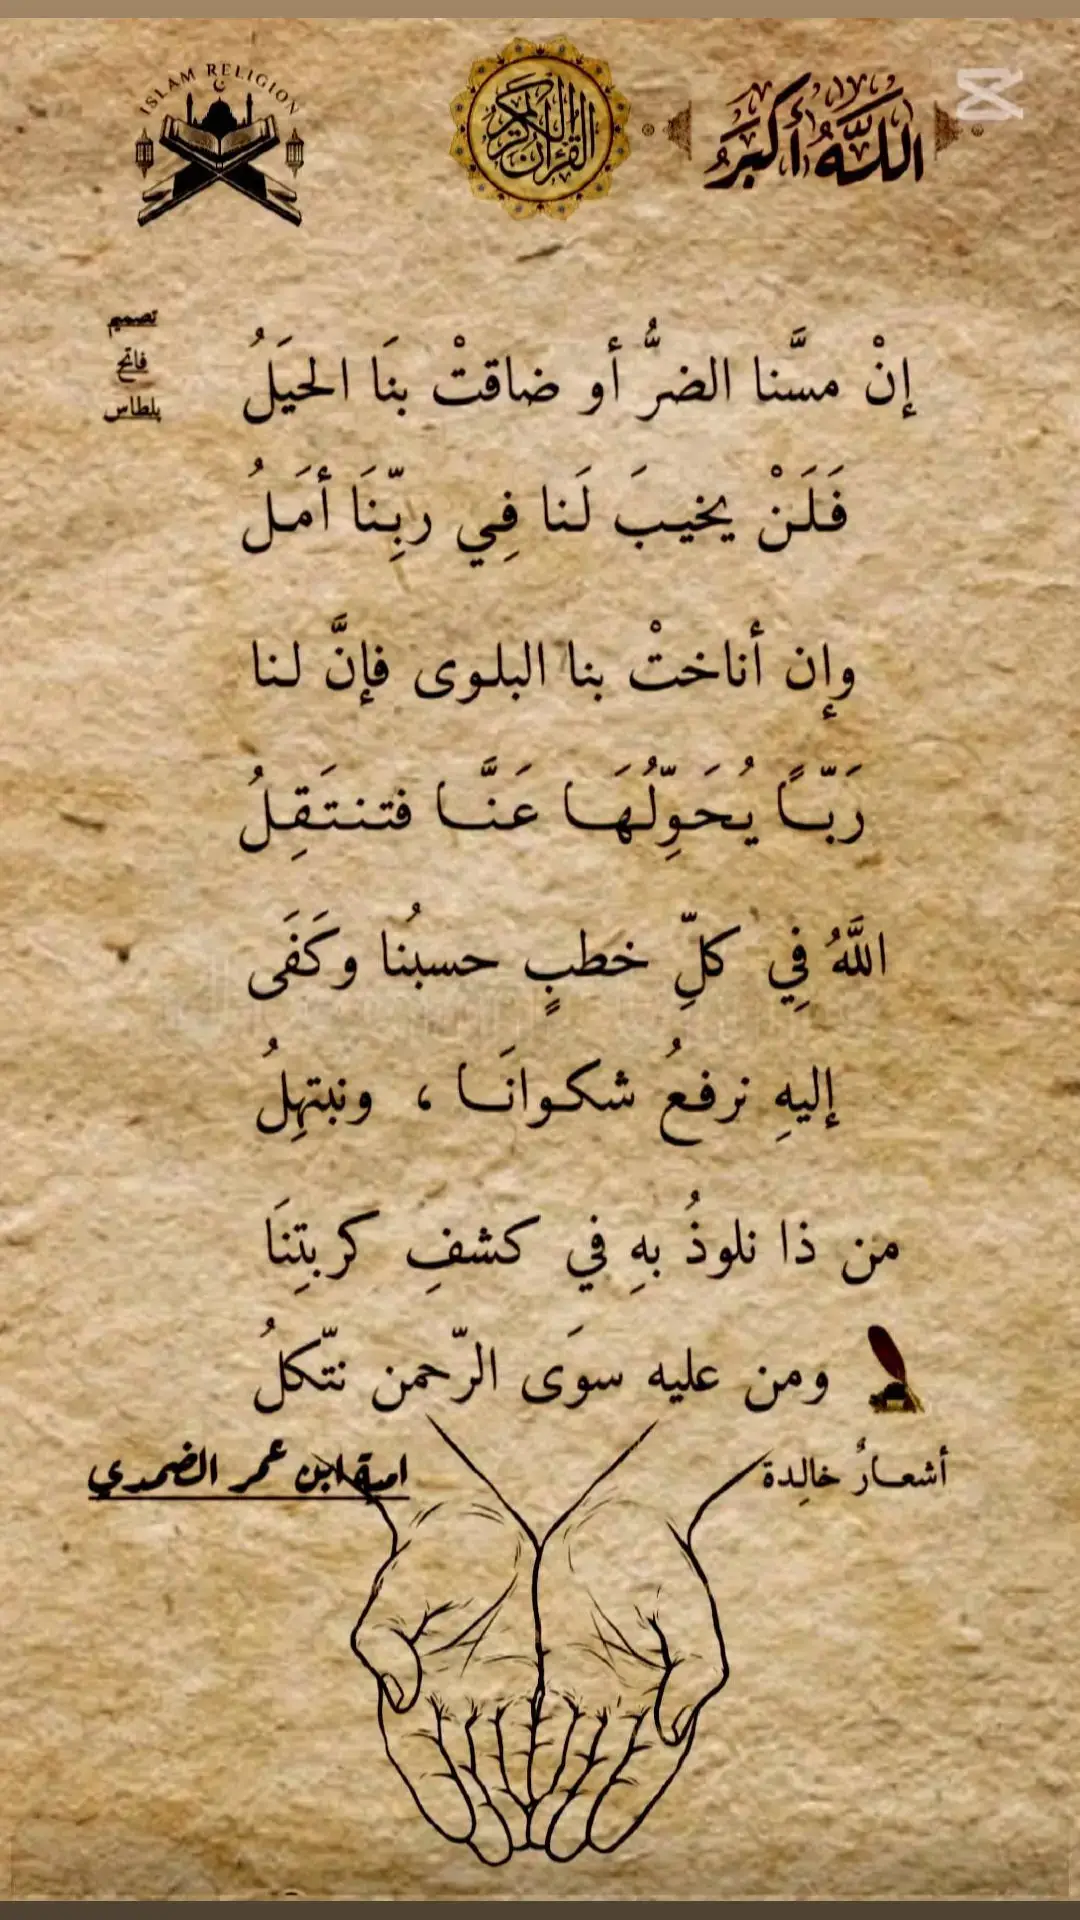 ISLAM RELIGION
القرآن الكريم
اللَّهُ أَكْبَرُ
تصميم
فاتح
بلطاس
إنْ مسَّنا الضرُّ أو ضاقتْ بنَا الحيَلُ
فَلَنْ يخيبَ لَنا فِي ربِّنَا أمَلُ
وإن أناختْ بنا البلوى فإنَّ لنا
رَبّاً يُحَوِّلُهَا عَنَّا فتنتَقِلُ
اللَّهُ فِي كلِّ خطبٍ حسبُنا وكَفَى
إليهِ نرفعُ شكوانَا ، ونبتهِلُ
من ذا نلوذُ بهِ في كشفِ كربتِنَا
ومن عليه سوَى الرّحمن نتّكلُ
أشعارٌ خالِدة
ابن عمر الضمدي